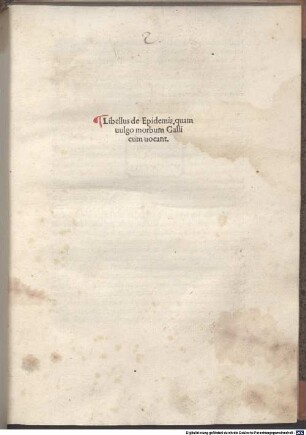 2
¶Libellus de Epidemia, quam
uulgo morbum Galli
cum uocant.
Digitalisierung gefördert durch die Deutsche Forschungsgemeinschaft